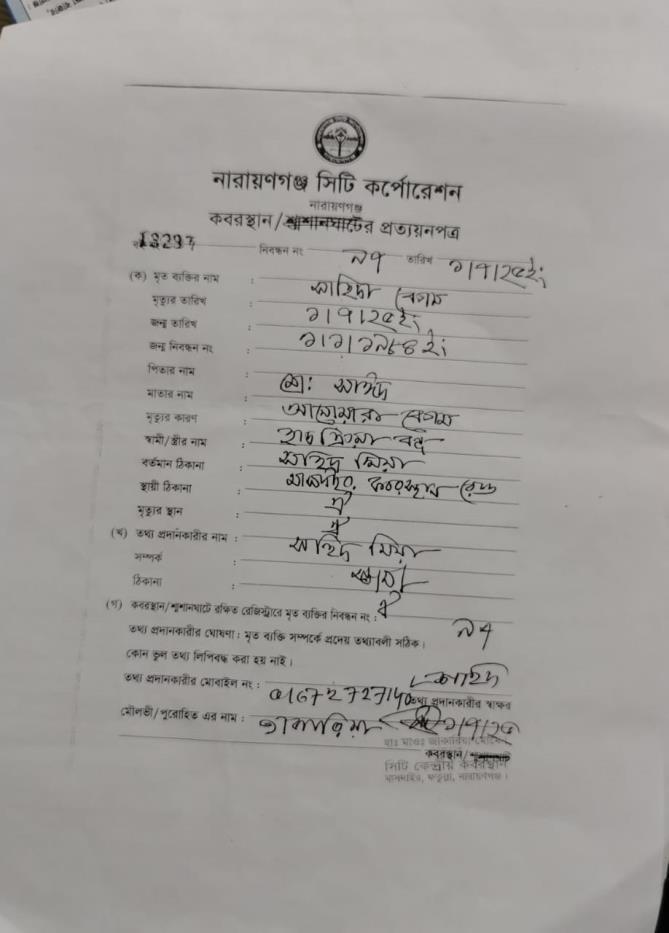 নারায়ণগঞ্জ সিটি কর্পোরেশন
নারায়ণগঞ্জ
কবরস্থান/শ্মশানঘাটের প্রত্যয়নপত্র
নিবন্ধন নং তারিখ ১।৭।২৫ইং
(ক) মৃত ব্যক্তির নাম : সাহিদা বেগম
মৃত্যুর তারিখ : ১।৭।২৫ইং
জন্ম তারিখ : ১।১।১৯৮৪ইং
জন্ম নিবন্ধন নং :
পিতার নাম : মো:
মাতার নাম : আনোয়ারা বেগম
মৃত্যুর কারণ : হৃদক্রিয়া বন্ধ
স্বামী/স্ত্রীর নাম : সাহিদ মিয়া
বর্তমান ঠিকানা : মাসদাইর, কবরস্থান রোড
স্থায়ী ঠিকানা : ঐ
মৃত্যুর স্থান : ঐ
(খ) তথ্য প্রদানকারীর নাম : সাহিদ মিয়া
সম্পর্ক : স্বামী
ঠিকানা : ঐ
(গ) কবরস্থান/শ্মশানঘাটে রক্ষিত রেজিস্ট্রারে মৃত ব্যক্তির নিবন্ধন নং :
তথ্য প্রদানকারীর ঘোষণা : মৃত ব্যক্তি সম্পর্কে প্রদেয় তথ্যাবলী সঠিক।
কোন ভুল তথ্য লিপিবদ্ধ করা হয় নাই।
তথ্য প্রদানকারীর মোবাইল নং : তথ্য প্রদানকারীর স্বাক্ষর
মৌলভী/পুরোহিত এর নাম :
কবরস্থান/
সিটি কেন্দ্রীয় কবরস্থান
মাসদাইর, ফতুল্লা, নারায়ণগঞ্জ।